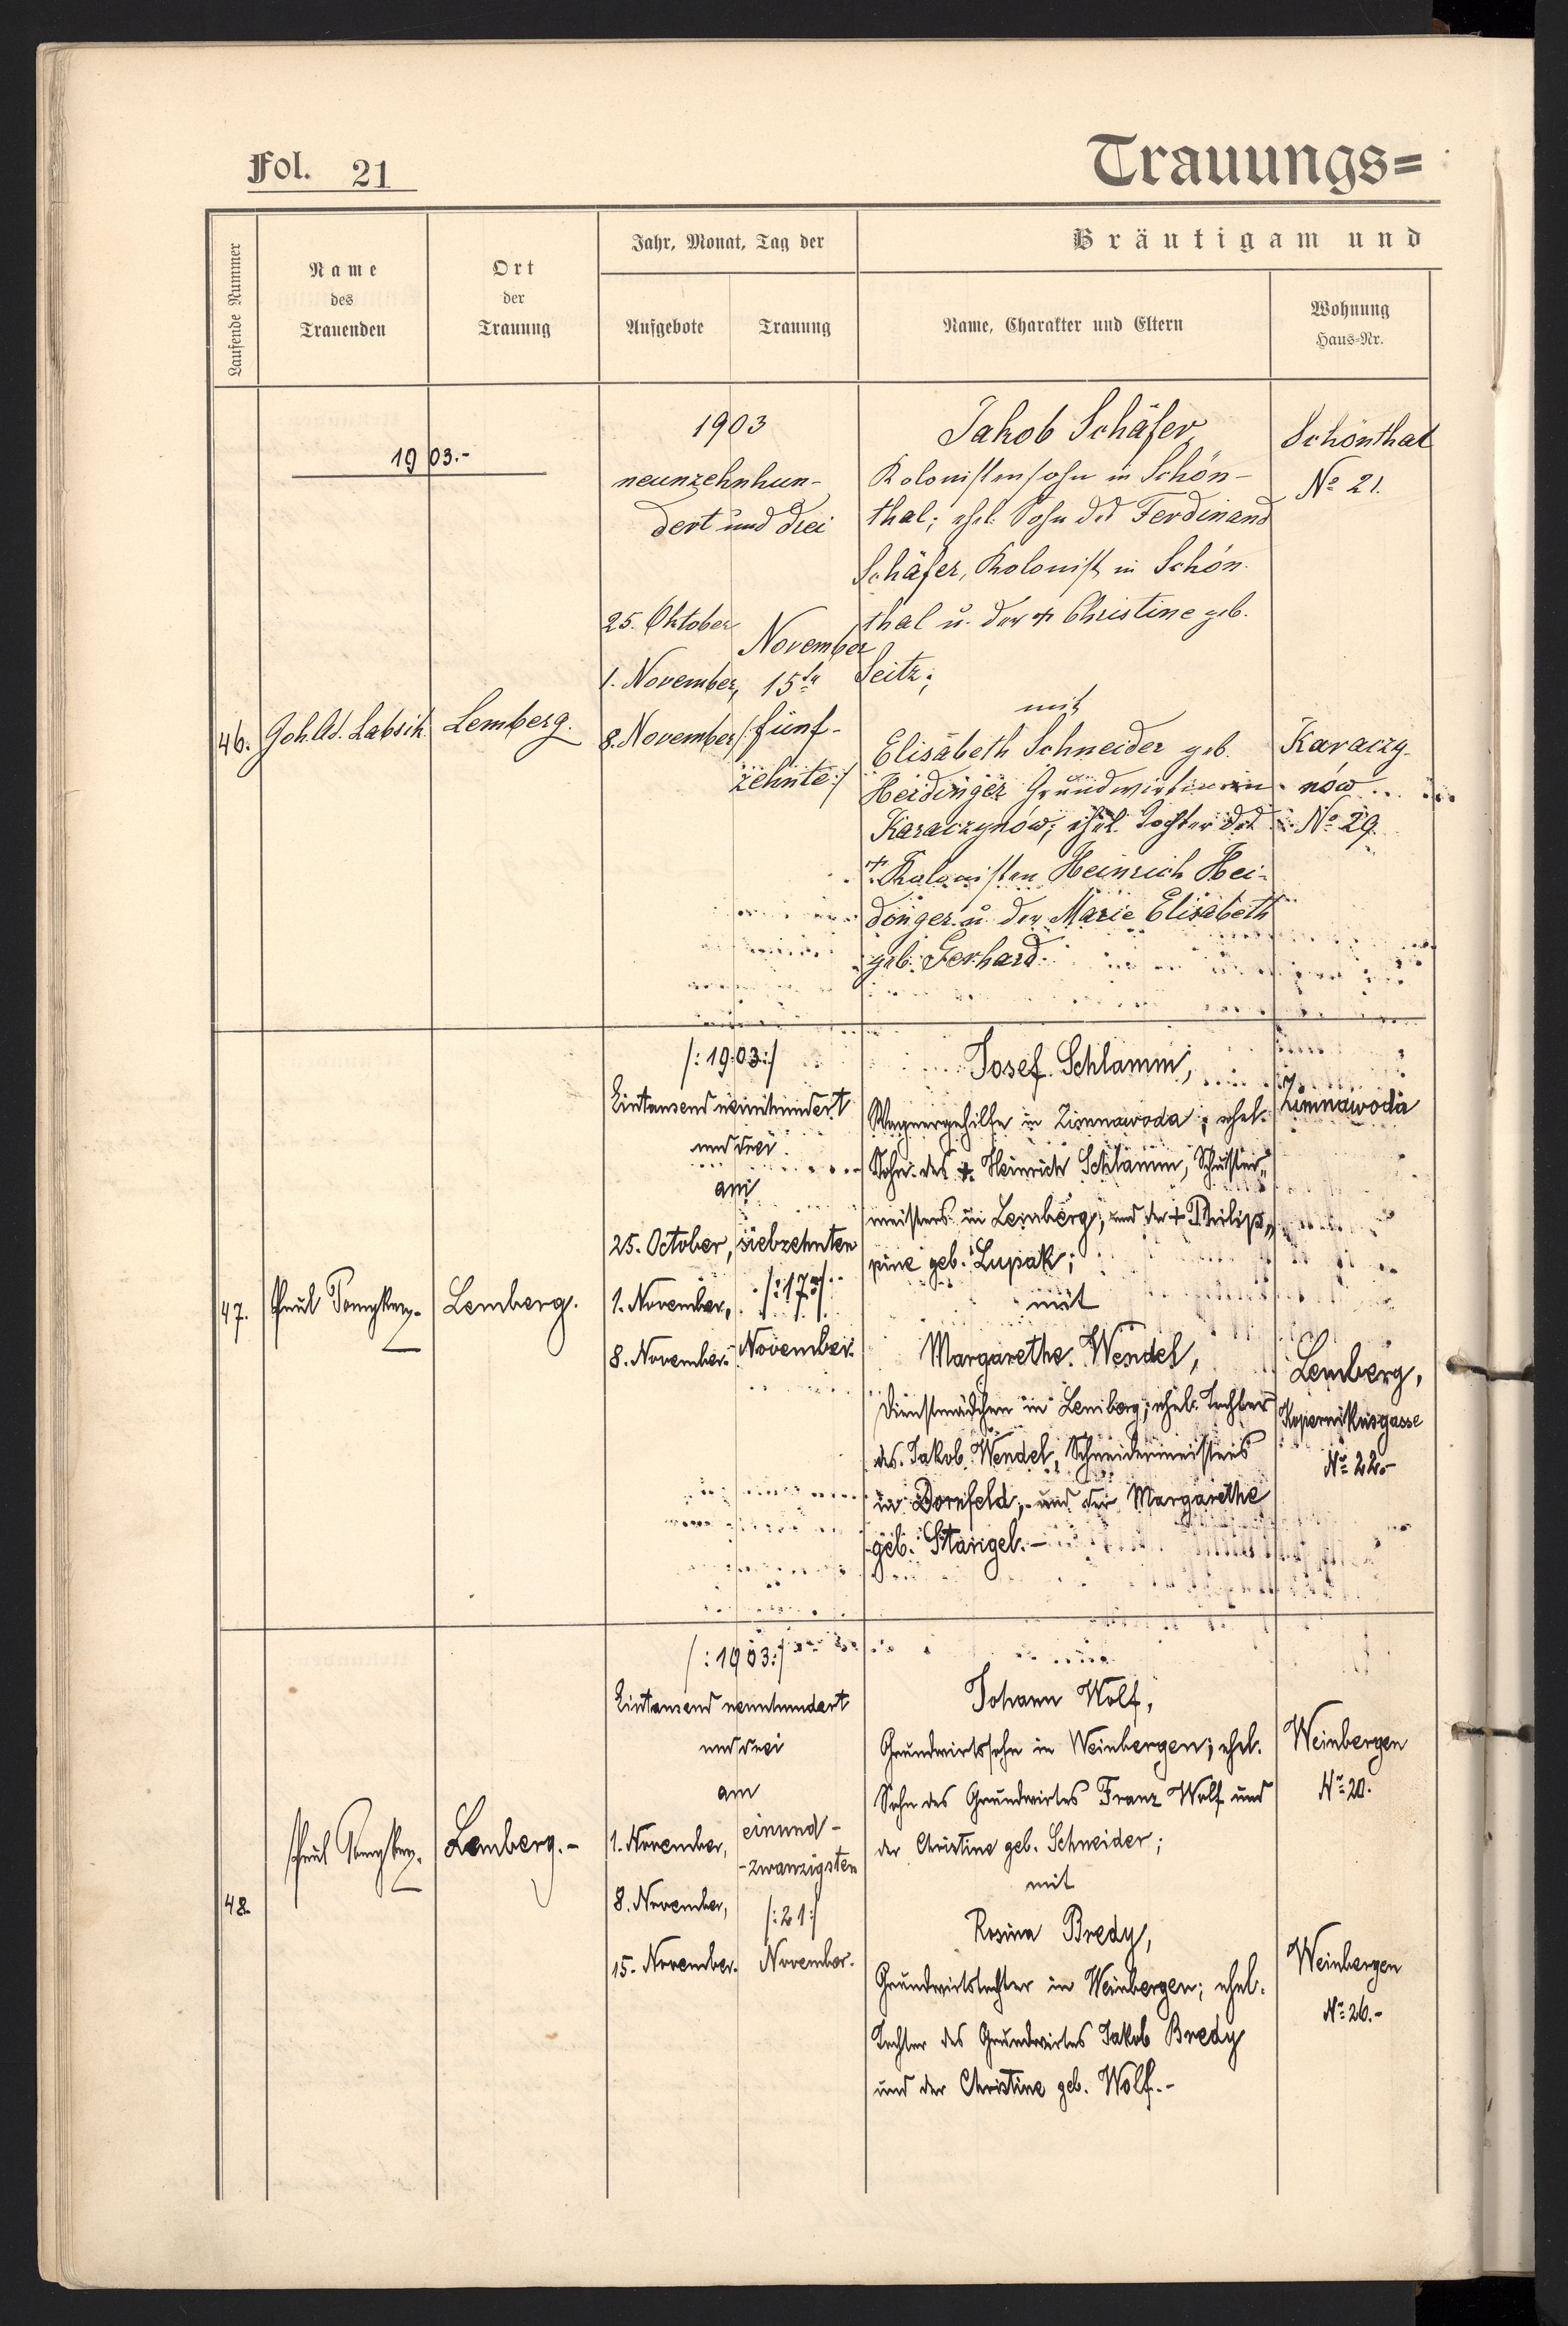 Fol. 21
Trauungs=
Laufende Nummer
Name
des
Trauenden
Ort
der
Trauung
Jahr, Monat, Tag der
Aufgebote
Trauung
Bräutigam und
Name, Charakter und Eltern
Wohnung
Haus-Nr.
1903.-
46.
Joh. Ad. Labsik
Lemberg.
1903
neunzehnhun-
dert und drei
25. Oktober
1. November,
8. November
November
15te
/: fünf-
zehnte :/
Jakob Schäfer,
Kolonistensohn in Schön-
thal; ehel. Sohn des Ferdinand
Schäfer, Kolonist in Schön-
thal u. der + Christine geb.
Seitz;
mit
Elisabeth Schneider geb.
Heidinger Grundwirtin in
Karaczynów; ehel. Tochter des
+ Kolonisten Heinrich Hei-
dinger u. der Marie Elisabeth
geb. Gerhard.
Schönthal
No 21.
Karaczy-
nów
No 29.
47.
Paul
Lemberg.
/: 1903 :/
Eintausend neunhundert
und drei
am
25. October,
1. November,
8. November.
siebzehnten
/: 17 :/
November.
Josef Schlamm,
Wagnergehilfe in Zimnawoda; ehel.
Sohn des +. Heinrich Schlamm, Schuster„
meisters in Lemberg, und der + Philip„
pine geb. Lupak;
mit
Margarethe Wendel,
Dienstmädchen in Lemberg; ehel. Tochter
des Jakob Wendel, Schneidermeisters
in Dornfeld, und der Margarethe
geb. Stangel.-
Zimnawoda
Lemberg,
Kopernikusgasse
No 22.-
48.
Paul
Lemberg.-
/: 1903 :/
Eintausend neunhundert
und drei
am
1. November,
8. November,
15. November.
einund-
-zwanzigsten
/: 21 :/
November.
Johann Wolf,
Grundwirtssohn in Weinbergen; ehel.
Sohn des Grundwirtes Franz Wolf und
der Christine geb. Schneider;
mit
Rosina Bredy,
Grundwirtstochter in Weinbergen; ehel.
Tochter des Grundwirtes Jakob Bredy
und der Christine geb. Wolf.-
Weinbergen
No 20.
Weinbergen
No 26.-